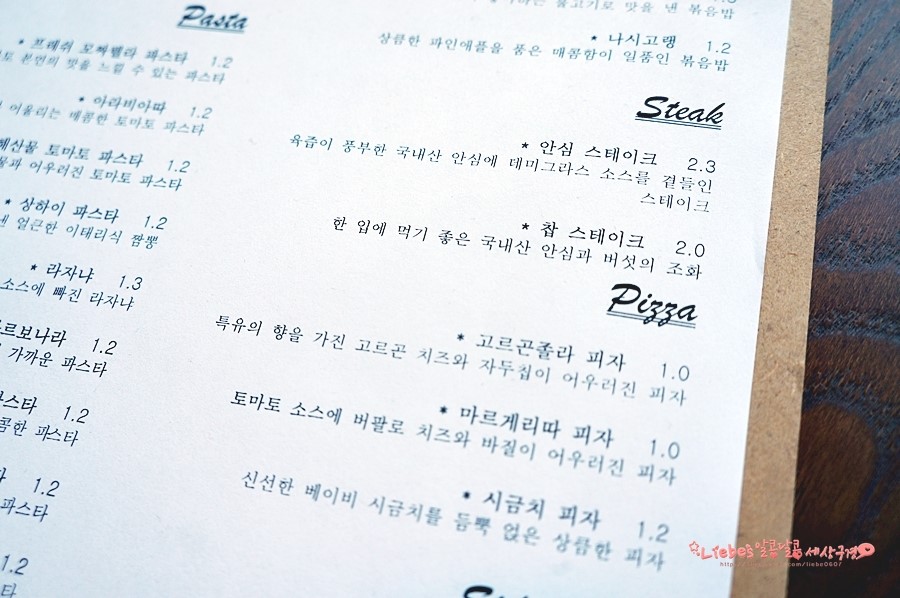 Pasta
* 프레쉬 모짜렐라 파스타 1.2
본연의 맛을 느낄 수 있는 파스타
* 아라비아따 1.2
어울리는 매콤한 토마토 파스타
해산물 토마토 파스타 1.2
어우러진 토마토 파스타
* 상하이 파스타 1.2
얼근한 이태리식 짬뽕
* 라자냐 1.3
소스에 빠진 라자냐
르보나라 1.2
가까운 파스타
스타 1.2
콤한 파스타
1.2
파스타
1.2
불고기로 맛을 낸 볶음밥
* 나시고랭 1.2
상큼한 파인애플을 품은 매콤함이 일품인 볶음밥
Steak
* 안심 스테이크 2.3
육즙이 풍부한 국내산 안심에 데미그라스 소스를 곁들인
스테이크
* 찹 스테이크 2.0
한 입에 먹기 좋은 국내산 안심과 버섯의 조화
Pizza
* 고르곤졸라 피자 1.0
특유의 향을 가진 고르곤 치즈와 자두칩이 어우러진 피자
* 마르게리따 피자 1.0
토마토 소스에 버팔로 치즈와 바질이 어우러진 피자
* 시금치 피자 1.2
신선한 베이비 시금치를 듬뿍 얹은 상큼한 피자
Liebe's 알콩달콩 세상구경